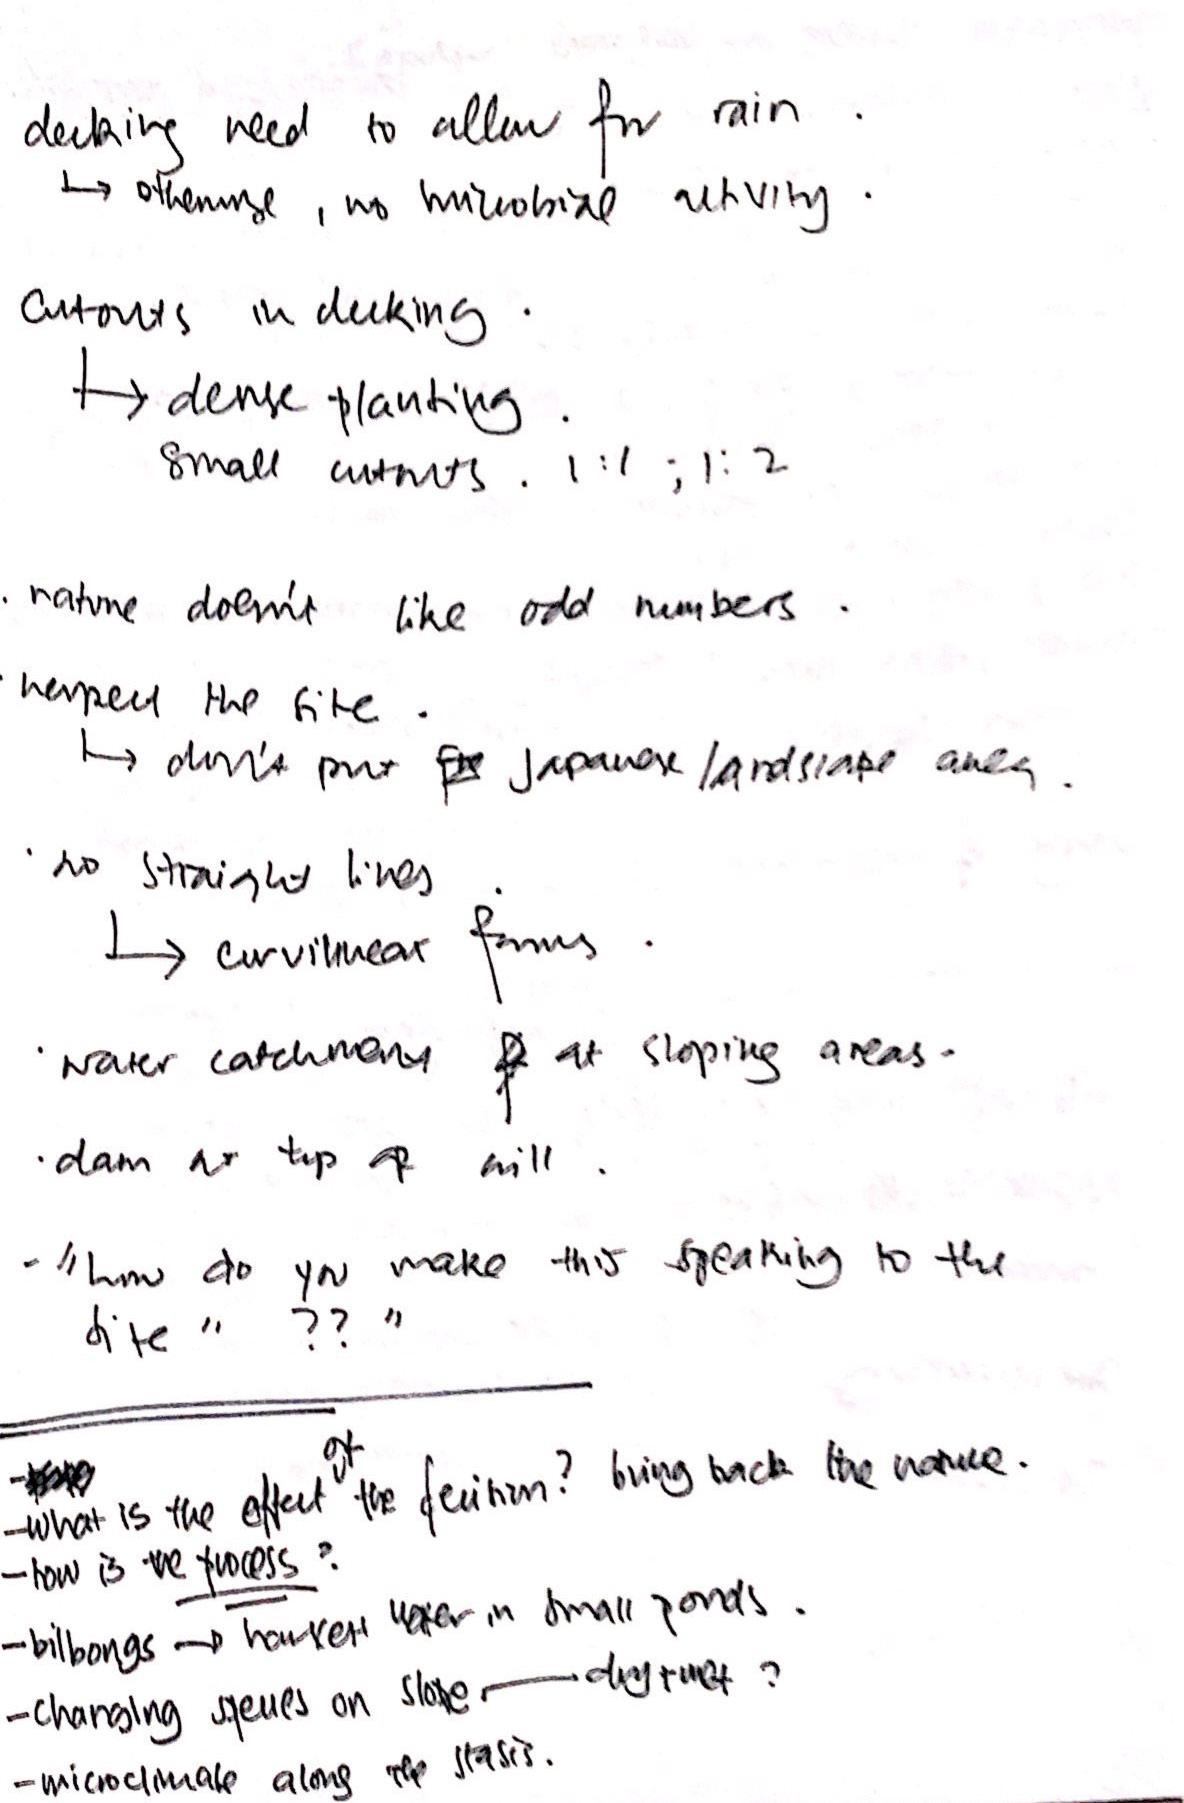 decking need to allow for rain.
↳ otherwise, no microbial activity.
Cutouts in decking.
↳ dense planting.
Small cutouts. 1:1 ; 1:2
. nature doesn't like odd numbers.
· respect the site.
↳ don't put Japanese landscape area.
· no straight lines.
↳ curvilinear forms.
· water catchment at sloping areas.
· dam at top of hill.
- "how do you make this speaking to the
site" ??"
- what is the effect of the decision? bring back the nature.
- how is the process?
- bilbongs → harvest water in small ponds.
- changing species on slope — dry + wet?
- microclimate along the stasis.